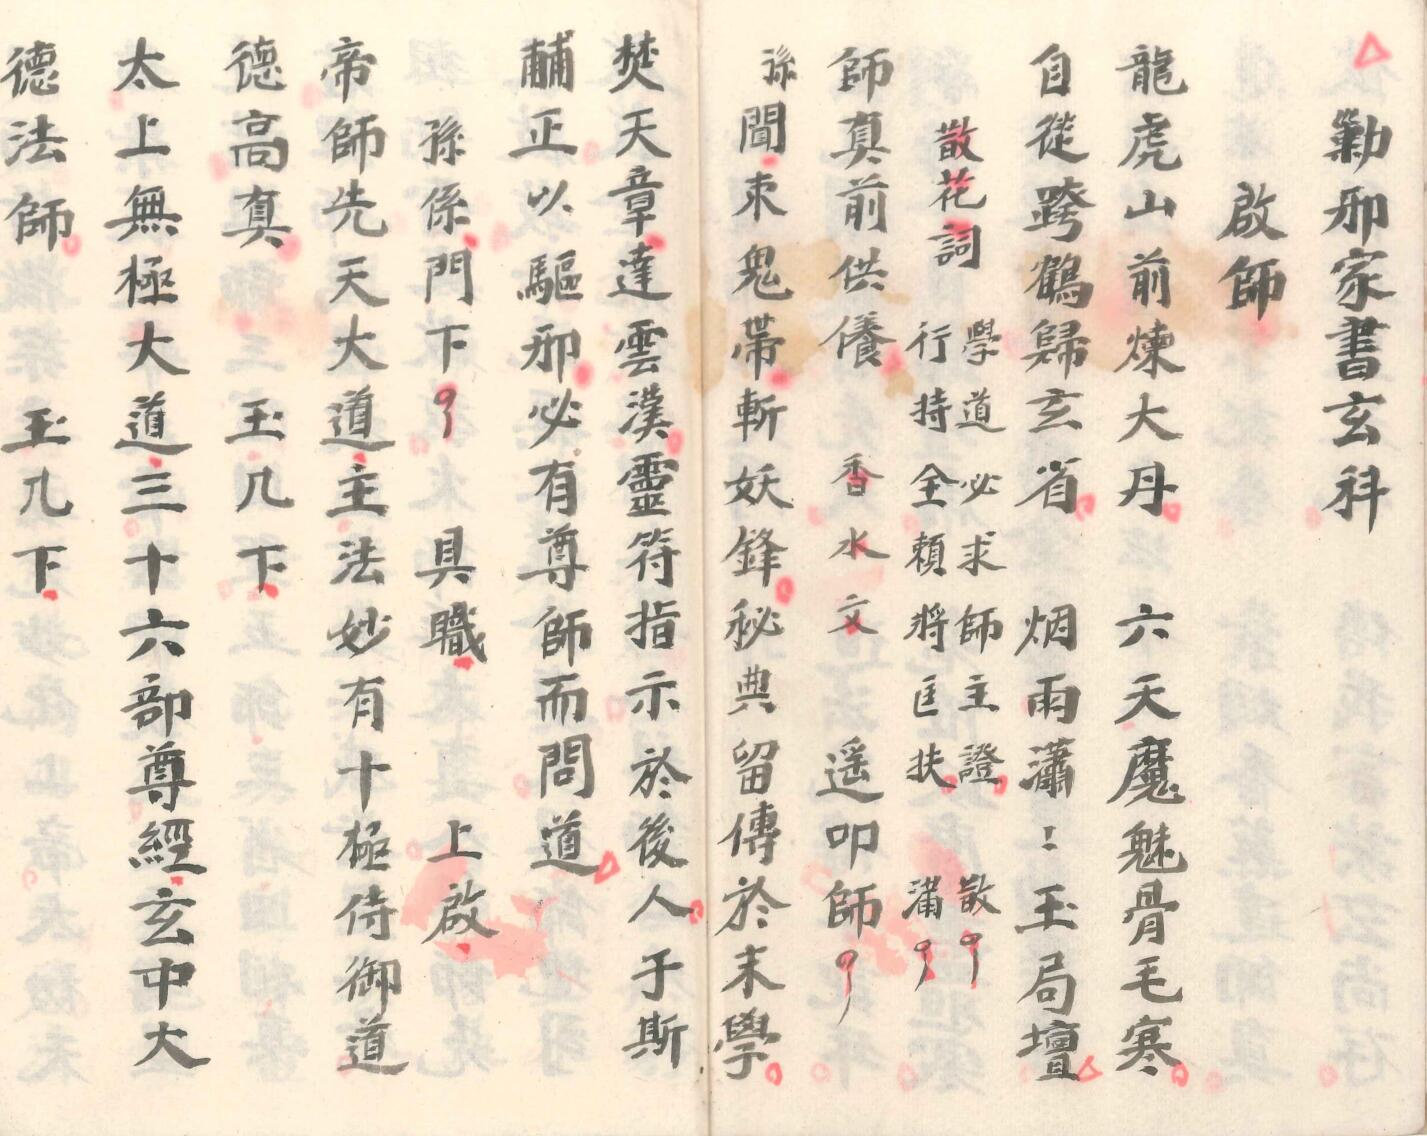 勦邪家書玄科
啟師
龍虎山前煉大丹 六天魔魅骨毛寒
自從跨鶴歸玄省 烟雨瀟〻玉局壇
散花詞 學道必求師主證 散
行持全賴將匡扶 滿
師真前供養 香水文 遥叩師
孫聞朿鬼帶斬妖鋒秘典留傳於末學
焚天章達雲漢靈符指示於後人于斯
輔正以驅邪必有尊師而問道
孫係門下 具職 上啟
帝師先天大道主法妙有十極侍御道
德高真 玉几下
太上無極大道三十六部尊經玄中大
德法師 玉几下